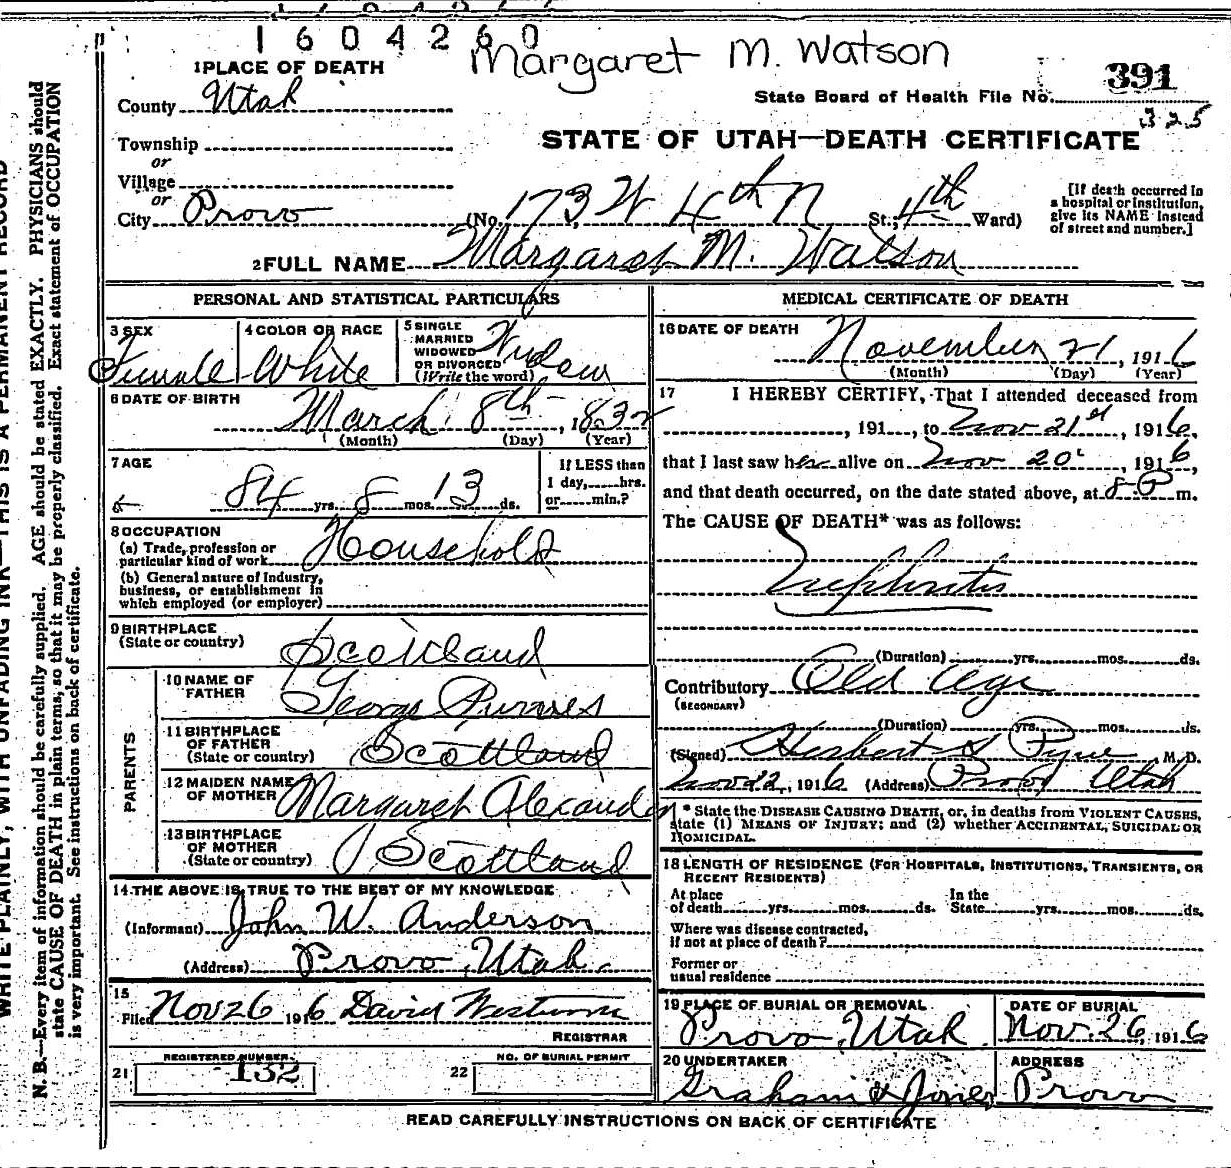 1604260
Margaret M. Watson
391
State Board of Health File No.
325
STATE OF UTAH—DEATH CERTIFICATE
1 PLACE OF DEATH
County Utah
Township
or
Village
or
City Provo (No. 173 W 4th N St; 4th Ward)
[If death occurred in
a hospital or institution,
give its NAME instead
of street and number.]
2 FULL NAME Margaret M. Watson
PERSONAL AND STATISTICAL PARTICULARS
3 SEX
Female
4 COLOR OR RACE
White
5 SINGLE
MARRIED
WIDOWED
OR DIVORCED
(Write the word)
Widow
6 DATE OF BIRTH
March 8th, 1832
(Month) (Day) (Year)
7 AGE
84 yrs. 8 mos. 13 ds.
If LESS than
1 day, hrs.
or min.?
8 OCCUPATION
(a) Trade, profession or
particular kind of work Household
(b) General nature of industry,
business, or establishment in
which employed (or employer)
9 BIRTHPLACE
(State or country)
Scottland
PARENTS
10 NAME OF
FATHER
George
11 BIRTHPLACE
OF FATHER
(State or country)
Scottland
12 MAIDEN NAME
OF MOTHER
Margaret Alexander
13 BIRTHPLACE
OF MOTHER
(State or country)
Scottland
14 THE ABOVE IS TRUE TO THE BEST OF MY KNOWLEDGE
(Informant) John W. Anderson
(Address) Provo, Utah.
15
Filed Nov 26 1916 David
REGISTRAR
REGISTERED NUMBER.
21 132
NO. OF BURIAL PERMIT
22
MEDICAL CERTIFICATE OF DEATH
16 DATE OF DEATH
November 21, 1916
(Month) (Day) (Year)
17 I HEREBY CERTIFY, That I attended deceased from
, 191 , to Nov 21st, 1916,
that I last saw her alive on Nov 20, 1916,
and that death occurred, on the date stated above, at 8 P m.
The CAUSE OF DEATH* was as follows:
Nephritis
(Duration) yrs. mos. ds.
Contributory Old Age
(SECONDARY)
(Duration) yrs. mos. ds.
(Signed) Herbert S Pyne M. D.
Nov 22, 1916 (Address) Provo Utah
* State the DISEASE CAUSING DEATH, or, in deaths from VIOLENT CAUSES,
state (1) MEANS OF INJURY; and (2) whether ACCIDENTAL, SUICIDAL OR
HOMICIDAL.
18 LENGTH OF RESIDENCE (FOR HOSPITALS, INSTITUTIONS, TRANSIENTS, OR
RECENT RESIDENTS)
At place
of death yrs. mos. ds.
In the
State yrs. mos. ds.
Where was disease contracted,
if not at place of death?
Former or
usual residence
19 PLACE OF BURIAL OR REMOVAL
Provo, Utah
DATE OF BURIAL
Nov. 26, 1916
20 UNDERTAKER
Graham & Jones
ADDRESS
Provo
READ CAREFULLY INSTRUCTIONS ON BACK OF CERTIFICATE
WRITE PLAINLY, WITH UNFADING INK—THIS IS A PERMANENT RECORD
N. B.—Every item of information should be carefully supplied. AGE should be stated EXACTLY. PHYSICIANS should
state CAUSE OF DEATH in plain terms, so that it may be properly classified. Exact statement of OCCUPATION
is very important. See instructions on back of certificate.